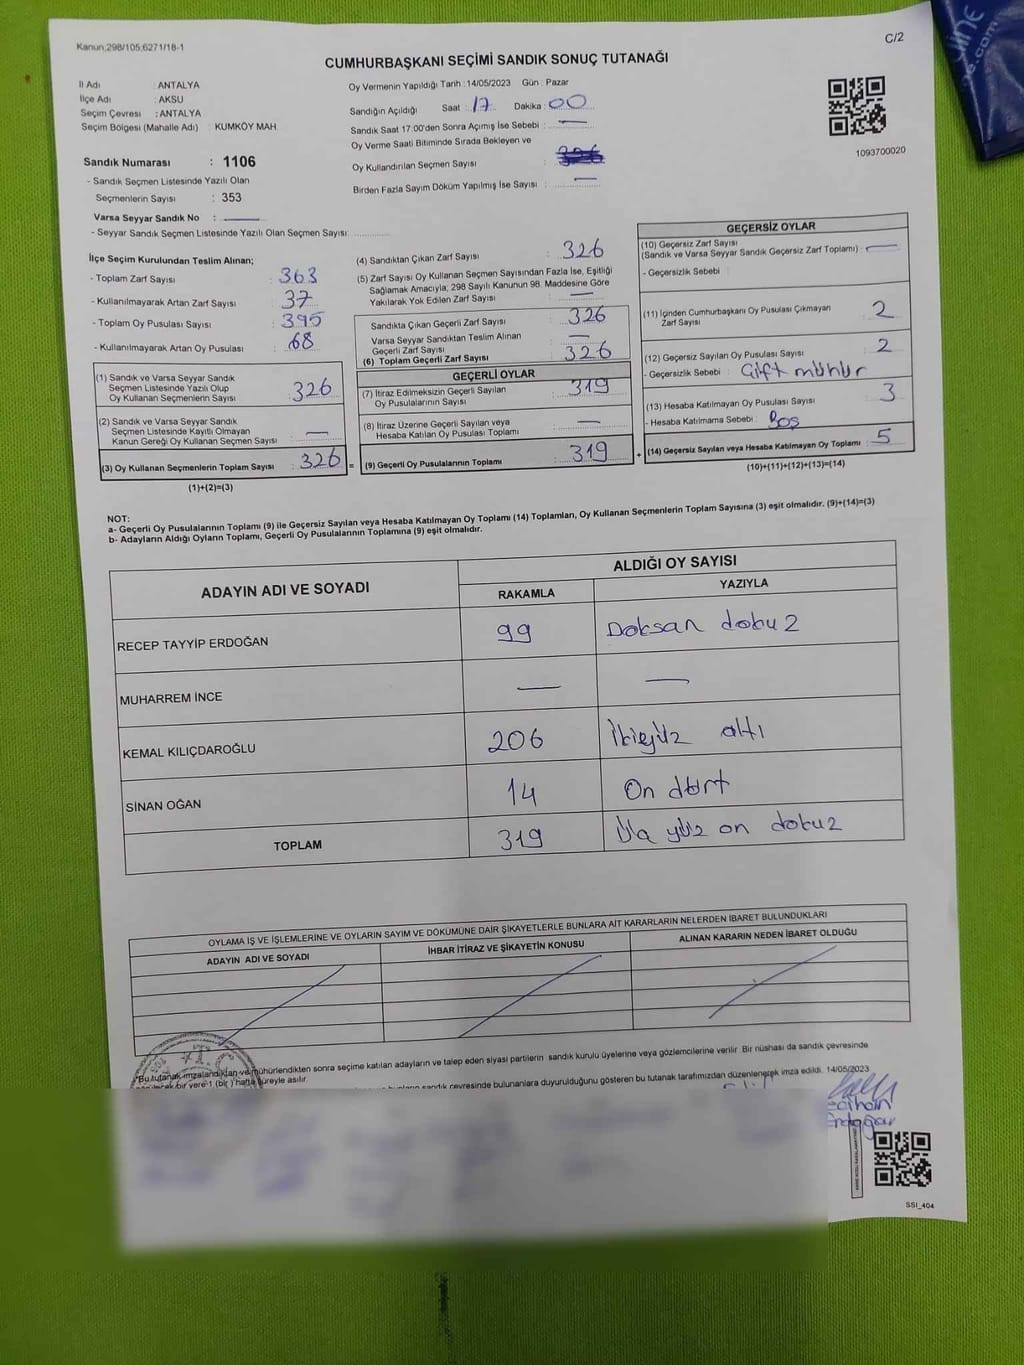 Kanun;298/105;6271/18-1
C/2
CUMHURBAŞKANI SEÇİMİ SANDIK SONUÇ TUTANAĞI
İl Adı : ANTALYA
İlçe Adı : AKSU
Seçim Çevresi : ANTALYA
Seçim Bölgesi (Mahalle Adı) : KUMKÖY MAH.
Sandık Numarası : 1106
- Sandık Seçmen Listesinde Yazılı Olan
Seçmenlerin Sayısı : 353
Varsa Seyyar Sandık No : —
- Seyyar Sandık Seçmen Listesinde Yazılı Olan Seçmen Sayısı:
Oy Vermenin Yapıldığı Tarih : 14/05/2023 Gün : Pazar
Sandığın Açıldığı Saat : 17 Dakika : 00
Sandık Saat 17:00'den Sonra Açımış İse Sebebi : —
Oy Verme Saati Bitiminde Sırada Bekleyen ve
Oy Kullandırılan Seçmen Sayısı :
Birden Fazla Sayım Döküm Yapılmış İse Sayısı : —
1093700020
İlçe Seçim Kurulundan Teslim Alınan;
- Toplam Zarf Sayısı : 363
- Kullanılmayarak Artan Zarf Sayısı : 37
- Toplam Oy Pusulası Sayısı : 395
- Kullanılmayarak Artan Oy Pusulası : 68
(1) Sandık ve Varsa Seyyar Sandık
Seçmen Listesinde Yazılı Olup
Oy Kullanan Seçmenlerin Sayısı : 326
(2) Sandık ve Varsa Seyyar Sandık
Seçmen Listesinde Kayıtlı Olmayan
Kanun Gereği Oy Kullanan Seçmen Sayısı : —
(3) Oy Kullanan Seçmenlerin Toplam Sayısı : 326 =
(1)+(2)=(3)
(4) Sandıktan Çıkan Zarf Sayısı : 326
(5) Zarf Sayısı Oy Kullanan Seçmen Sayısından Fazla İse, Eşitliği
Sağlamak Amacıyla; 298 Sayılı Kanunun 98. Maddesine Göre
Yakılarak Yok Edilen Zarf Sayısı : —
Sandıkta Çıkan Geçerli Zarf Sayısı : 326
Varsa Seyyar Sandıktan Teslim Alınan
Geçerli Zarf Sayısı : —
(6) Toplam Geçerli Zarf Sayısı : 326
GEÇERLİ OYLAR
(7) İtiraz Edilmeksizin Geçerli Sayılan
Oy Pusulalarının Sayısı : 319
(8) İtiraz Üzerine Geçerli Sayılan veya
Hesaba Katılan Oy Pusulası Toplamı : —
(9) Geçerli Oy Pusulalarının Toplamı : 319 +
GEÇERSİZ OYLAR
(10) Geçersiz Zarf Sayısı
(Sandık ve Varsa Seyyar Sandık Geçersiz Zarf Toplamı) : —
- Geçersizlik Sebebi :
(11) İçinden Cumhurbaşkanı Oy Pusulası Çıkmayan
Zarf Sayısı : 2
(12) Geçersiz Sayılan Oy Pusulası Sayısı : 2
- Geçersizlik Sebebi : Çift mühür
(13) Hesaba Katılmayan Oy Pusulası Sayısı : 3
- Hesaba Katılmama Sebebi : Boş
(14) Geçersiz Sayılan veya Hesaba Katılmayan Oy Toplamı : 5
(10)+(11)+(12)+(13)=(14)
NOT:
a- Geçerli Oy Pusulalarının Toplamı (9) ile Geçersiz Sayılan veya Hesaba Katılmayan Oy Toplamı (14) Toplamları, Oy Kullanan Seçmenlerin Toplam Sayısına (3) eşit olmalıdır. (9)+(14)=(3)
b- Adayların Aldığı Oyların Toplamı, Geçerli Oy Pusulalarının Toplamına (9) eşit olmalıdır.
ADAYIN ADI VE SOYADI
ALDIĞI OY SAYISI
RAKAMLA YAZIYLA
RECEP TAYYİP ERDOĞAN 99 Doksan dokuz
MUHARREM İNCE — —
KEMAL KILIÇDAROĞLU 206 İkiyüz altı
SİNAN OĞAN 14 On dört
TOPLAM 319 Üç yüz on dokuz
OYLAMA İŞ VE İŞLEMLERİNE VE OYLARIN SAYIM VE DÖKÜMÜNE DAİR ŞİKAYETLERLE BUNLARA AİT KARARLARIN NELERDEN İBARET BULUNDUKLARI
ADAYIN ADI VE SOYADI İHBAR İTİRAZ VE ŞİKAYETİN KONUSU ALINAN KARARIN NEDEN İBARET OLDUĞU
T.C
"Bu tutanak imzalandıktan ve mühürlendikten sonra seçime katılan adayların ve talep eden siyasi partilerin sandık kurulu üyelerine veya gözlemcilerine verilir. Bir nüshası da sandık çevresinde
bir yere 1 (bir) hafta süreyle asılır.
sandık çevresinde bulunanlara duyurulduğunu gösteren bu tutanak tarafımızdan düzenlenerek imza edildi. 14/05/2023
SSI_404